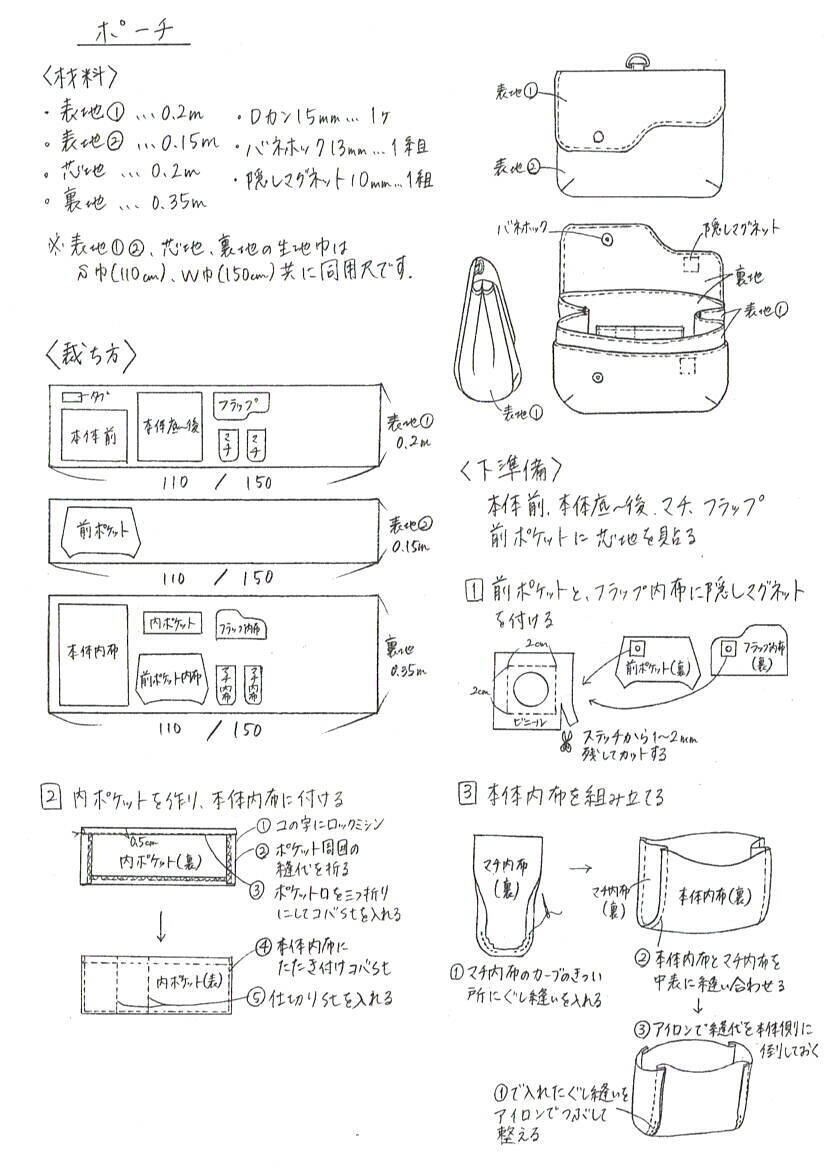 ポーチ
〈材料〉
・表地① … 0.2m
・表地② … 0.15m
・芯地 … 0.2m
・裏地 … 0.35m
・Dカン15mm … 1ヶ
・バネホック13mm … 1組
・隠しマグネット10mm … 1組
※表地①②、芯地、裏地の生地巾は
S巾(110cm)、W巾(150cm)共に同用尺です.
表地①
表地②
バネホック
隠しマグネット
裏地
表地①
表地①
〈裁ち方〉
タブ
本体前
本体底〜後
フラップ
マチ
マチ
表地①
0.2m
110 / 150
前ポケット
表地②
0.15m
110 / 150
本体内布
内ポケット
フラップ内布
前ポケット内布
マチ内布
マチ内布
裏地
0.35m
110 / 150
〈下準備〉
本体前、本体底〜後、マチ、フラップ
前ポケットに芯地を貼る
1 前ポケットと、フラップ内布に隠しマグネット
を付ける
2cm
2cm
ビニール
前ポケット(裏)
フラップ内布
(裏)
ステッチから1〜2mm
残してカットする
2 内ポケットを作り、本体内布に付ける
0.5cm
内ポケット(裏)
①コの字にロックミシン
②ポケット周囲の
縫代を折る
③ポケット口を三つ折り
にしてコバstを入れる
内ポケット(表)
④本体内布に
たたき付けコバst
⑤仕切りstを入れる
3 本体内布を組み立てる
マチ内布
(裏)
①マチ内布のカーブのきつい
所にぐし縫いを入れる
マチ内布
(裏)
本体内布(裏)
②本体内布とマチ内布を
中表に縫い合わせる
③アイロンで縫代を本体側に
倒しておく
①で入れたぐし縫いを
アイロンでつぶして
整える